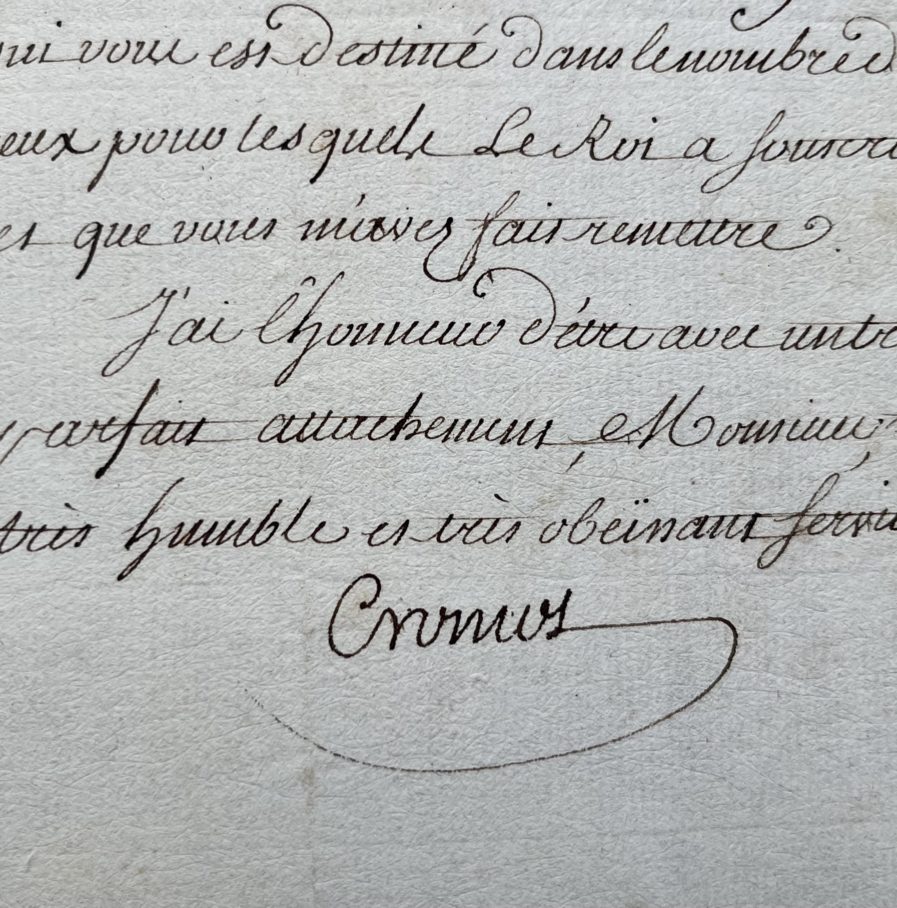 qui vous est destiné dans le nombre d
ceux pour lesquels Le Roi a souscri
et que vous m'avez fait remettre.
J'ai l'honneur d'être avec un tr
parfait attachement, Monsieur,
très humble et très obéïssant servit